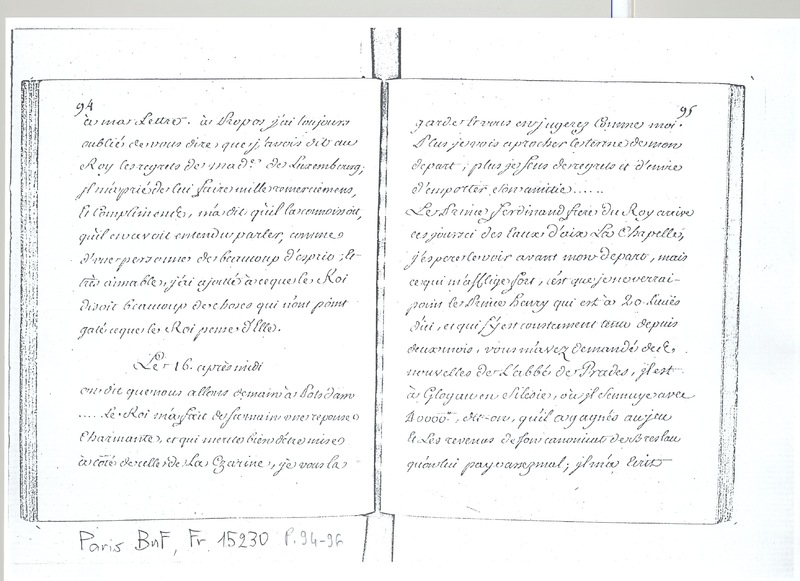 94
à ma Lettre. à Propos j'ai toujours
oublié de vous dire, que j'avois dit au
Roy les regrets de mad.e de Luxembourg;
jl m'a prié de lui faire mille remerciemens,
et Complimente, m'a dit qu'il la connoissoit,
qu'il en avoit entendu parler, comme
d'une personne de beaucoup d'esprit, et
très aimable, j'ai ajouté à ce que le Roi
disoit beaucoup de choses qui n'ont point
gaté ce que le Roi pense d'Elle.
Le 16. après midi
on dit que nous allons demain à Potsdam
..... Le Roi m'a fait de sa main une reponse
Charmante, et qui merite bien d'être mise
à côté de celle de La Czarine, je vous la
95
garde et vous en jugerez Comme moi.
Plus je vois aprocher le terme de mon
depart, plus je sens de regrets et d'envie
d'emporter son amitié......
Le Prince Ferdinand frere du Roy arrive
ces jours ci des Eaux d'aix La Chapelle,
j'espere le voir avant mon depart, mais
ce qui m'afflige fort, c'est que je ne verrai
point le Prince henry qui est à 20. Lieües
d'ici, et qui s'y est constament tenu depuis
deux mois, vous m'avez demandé des
nouvelles de L'abbé de Prades, jl est
à Glogau en Silésie, où jl s'ennuye avec
40000.tt, dit-on, qu'il a gagnés au jeu
et Les revenus de son canonicat de Breslau
qu'on lui paye assez mal; jl m'a Ecrit
Paris BnF, Fr. 15230 P. 94-96